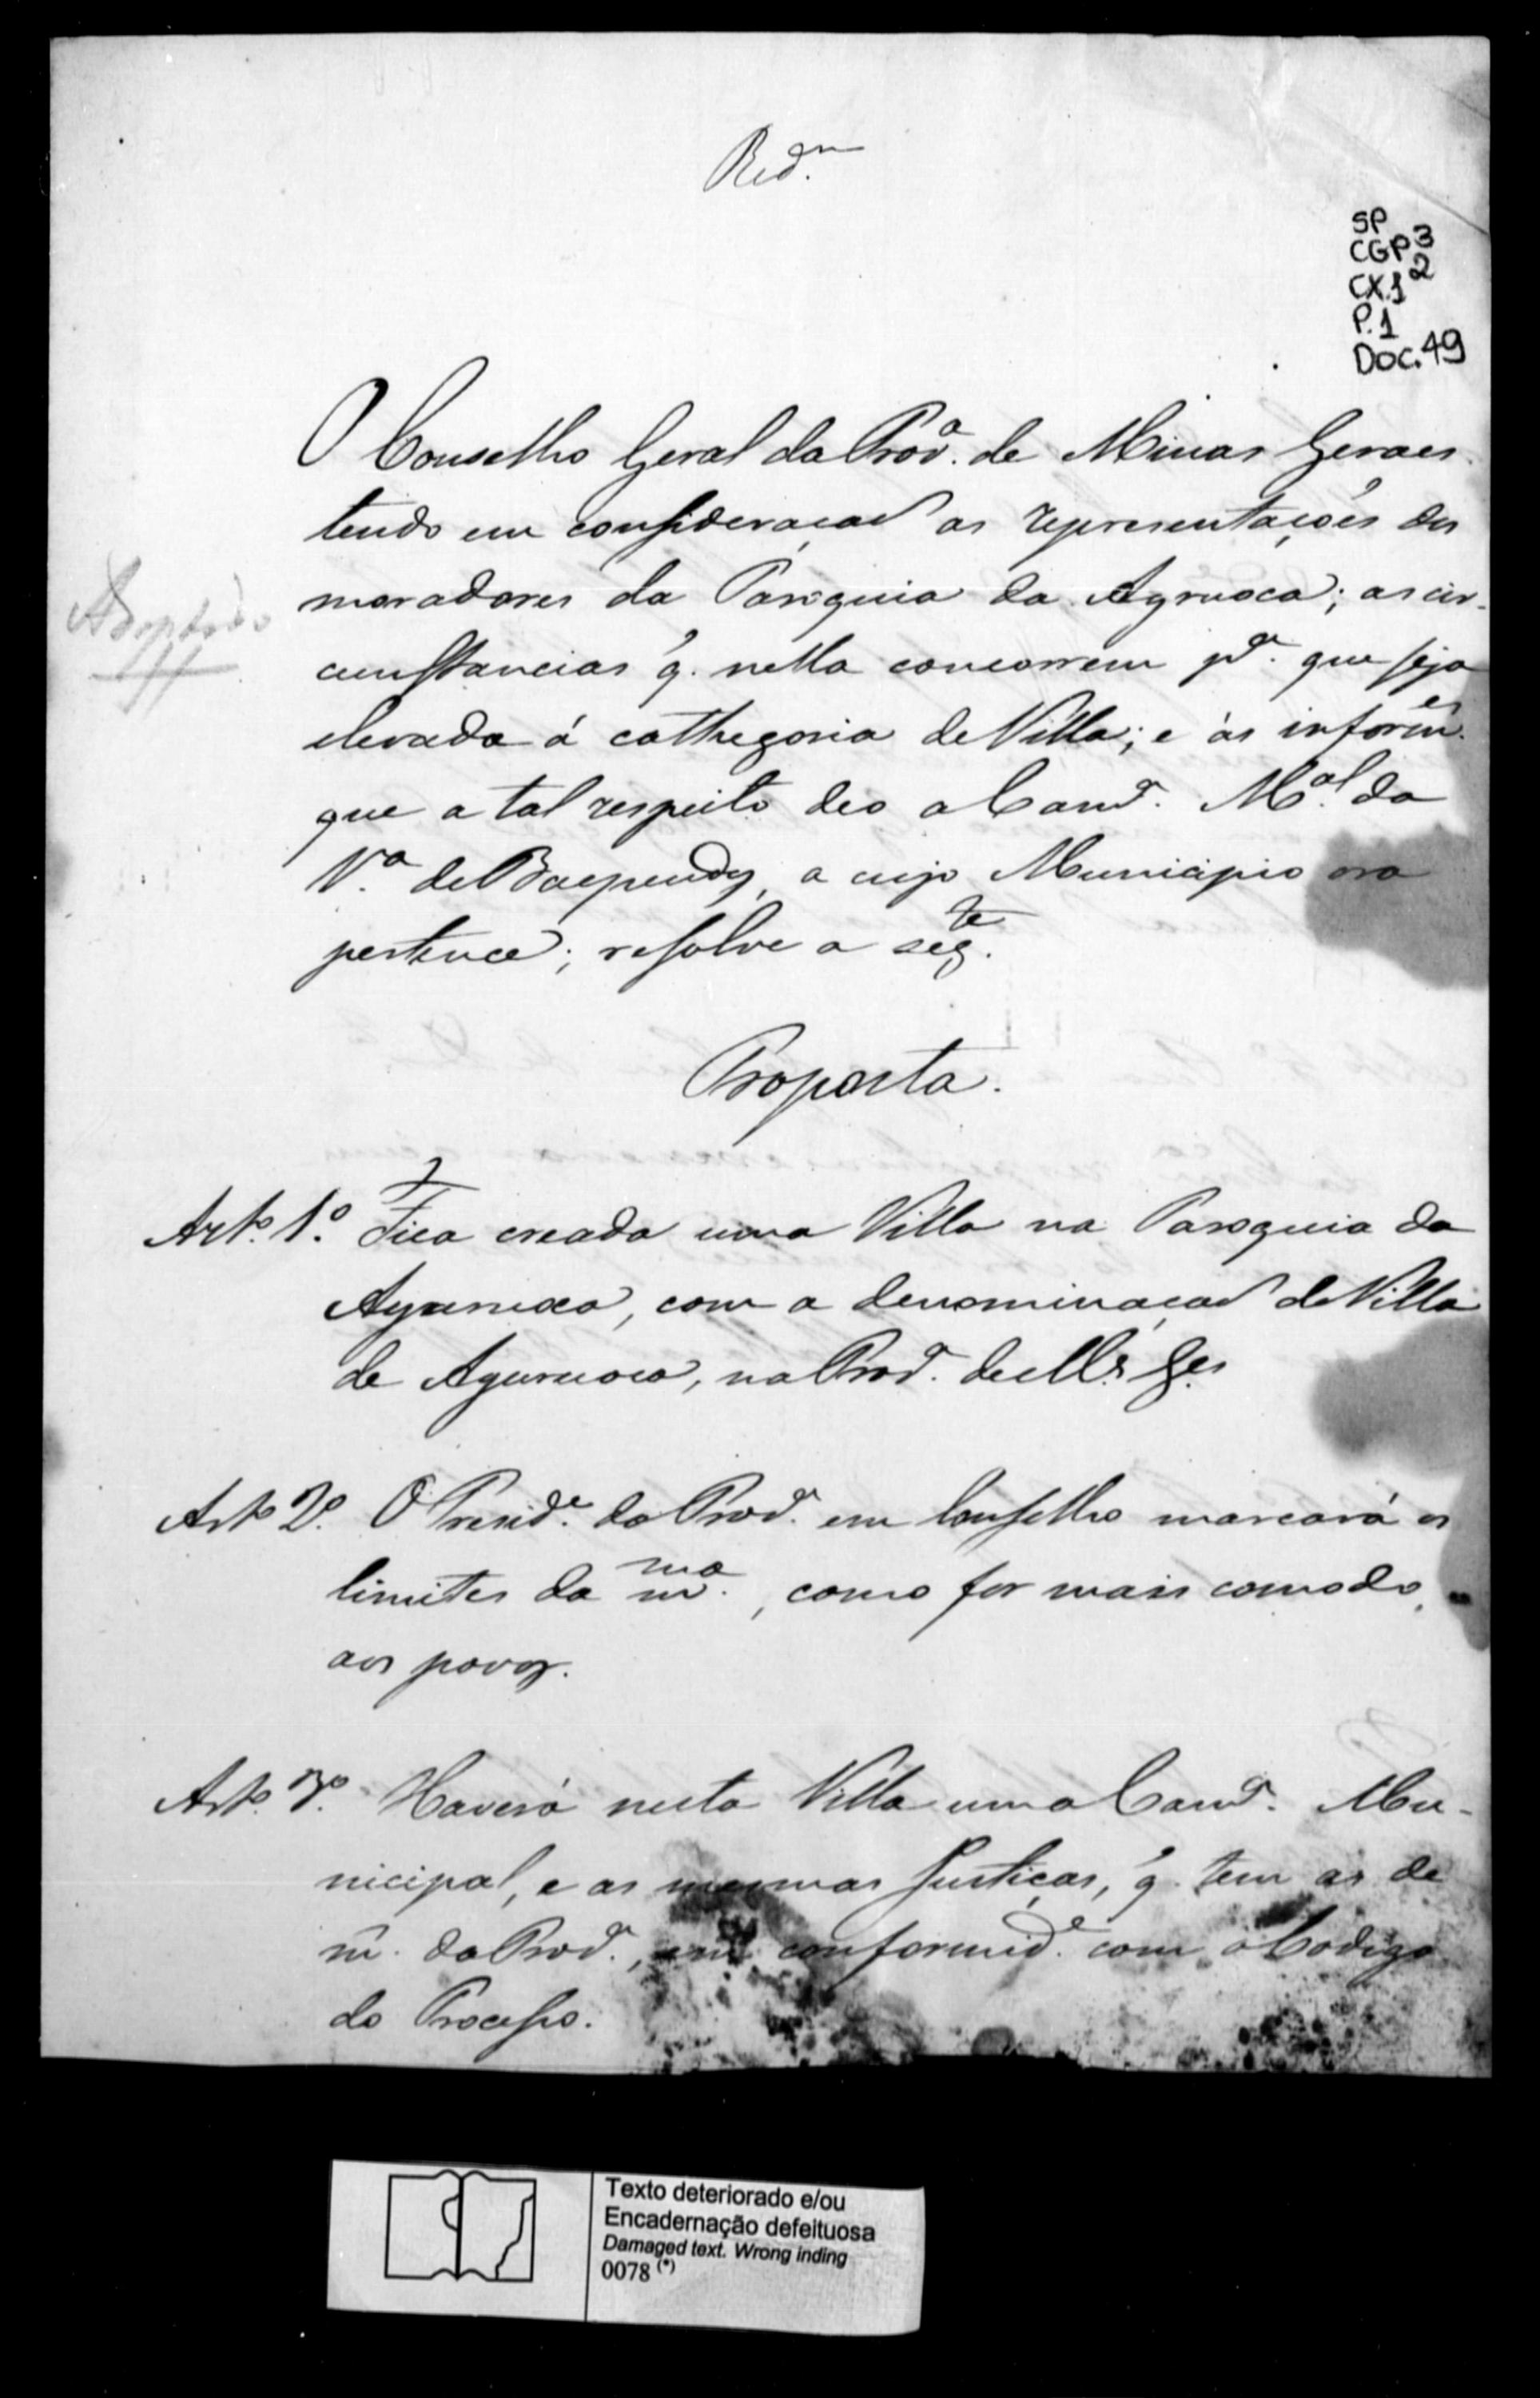 Red.m
SP
CGP3
CX.1 2
P.1
Doc.49
O Conselho Geral da Prov.a de Minas Geraes
tendo em consideração as representações dos
moradores da Paroquia da Ayruoca; as cir-
Adoptado
cunstancias q. nella concorrem p.a que seja
elevada á cathegoria de Villa; e ás inform.es
que a tal respeito deo a Cam.a M.al da
V.a de Baependy, a cujo Municipio ora
pertence; resolve a seg.te
Proposta.
Art.o 1.o Fica creada uma Villa na Paroquia da
Ayuruoca, com a denominação de Villa
de Ayuruoca, na Prov.a de M.s G.es
Art.o 2.o O Presid.e da Prov.a em Conselho marcará os
limites da m.ma, como for mais comodo,
aos povos.
Art.o 3.o Haverá nesta Villa uma Cam.a Mu-
nicipal, e as mesmas Justiças, q. tem as de
m. da Prov.a, em conformid.e com o Codigo
do Processo.
Texto deteriorado e/ou
Encadernação defeituosa
Damaged text. Wrong inding
0078 (*)